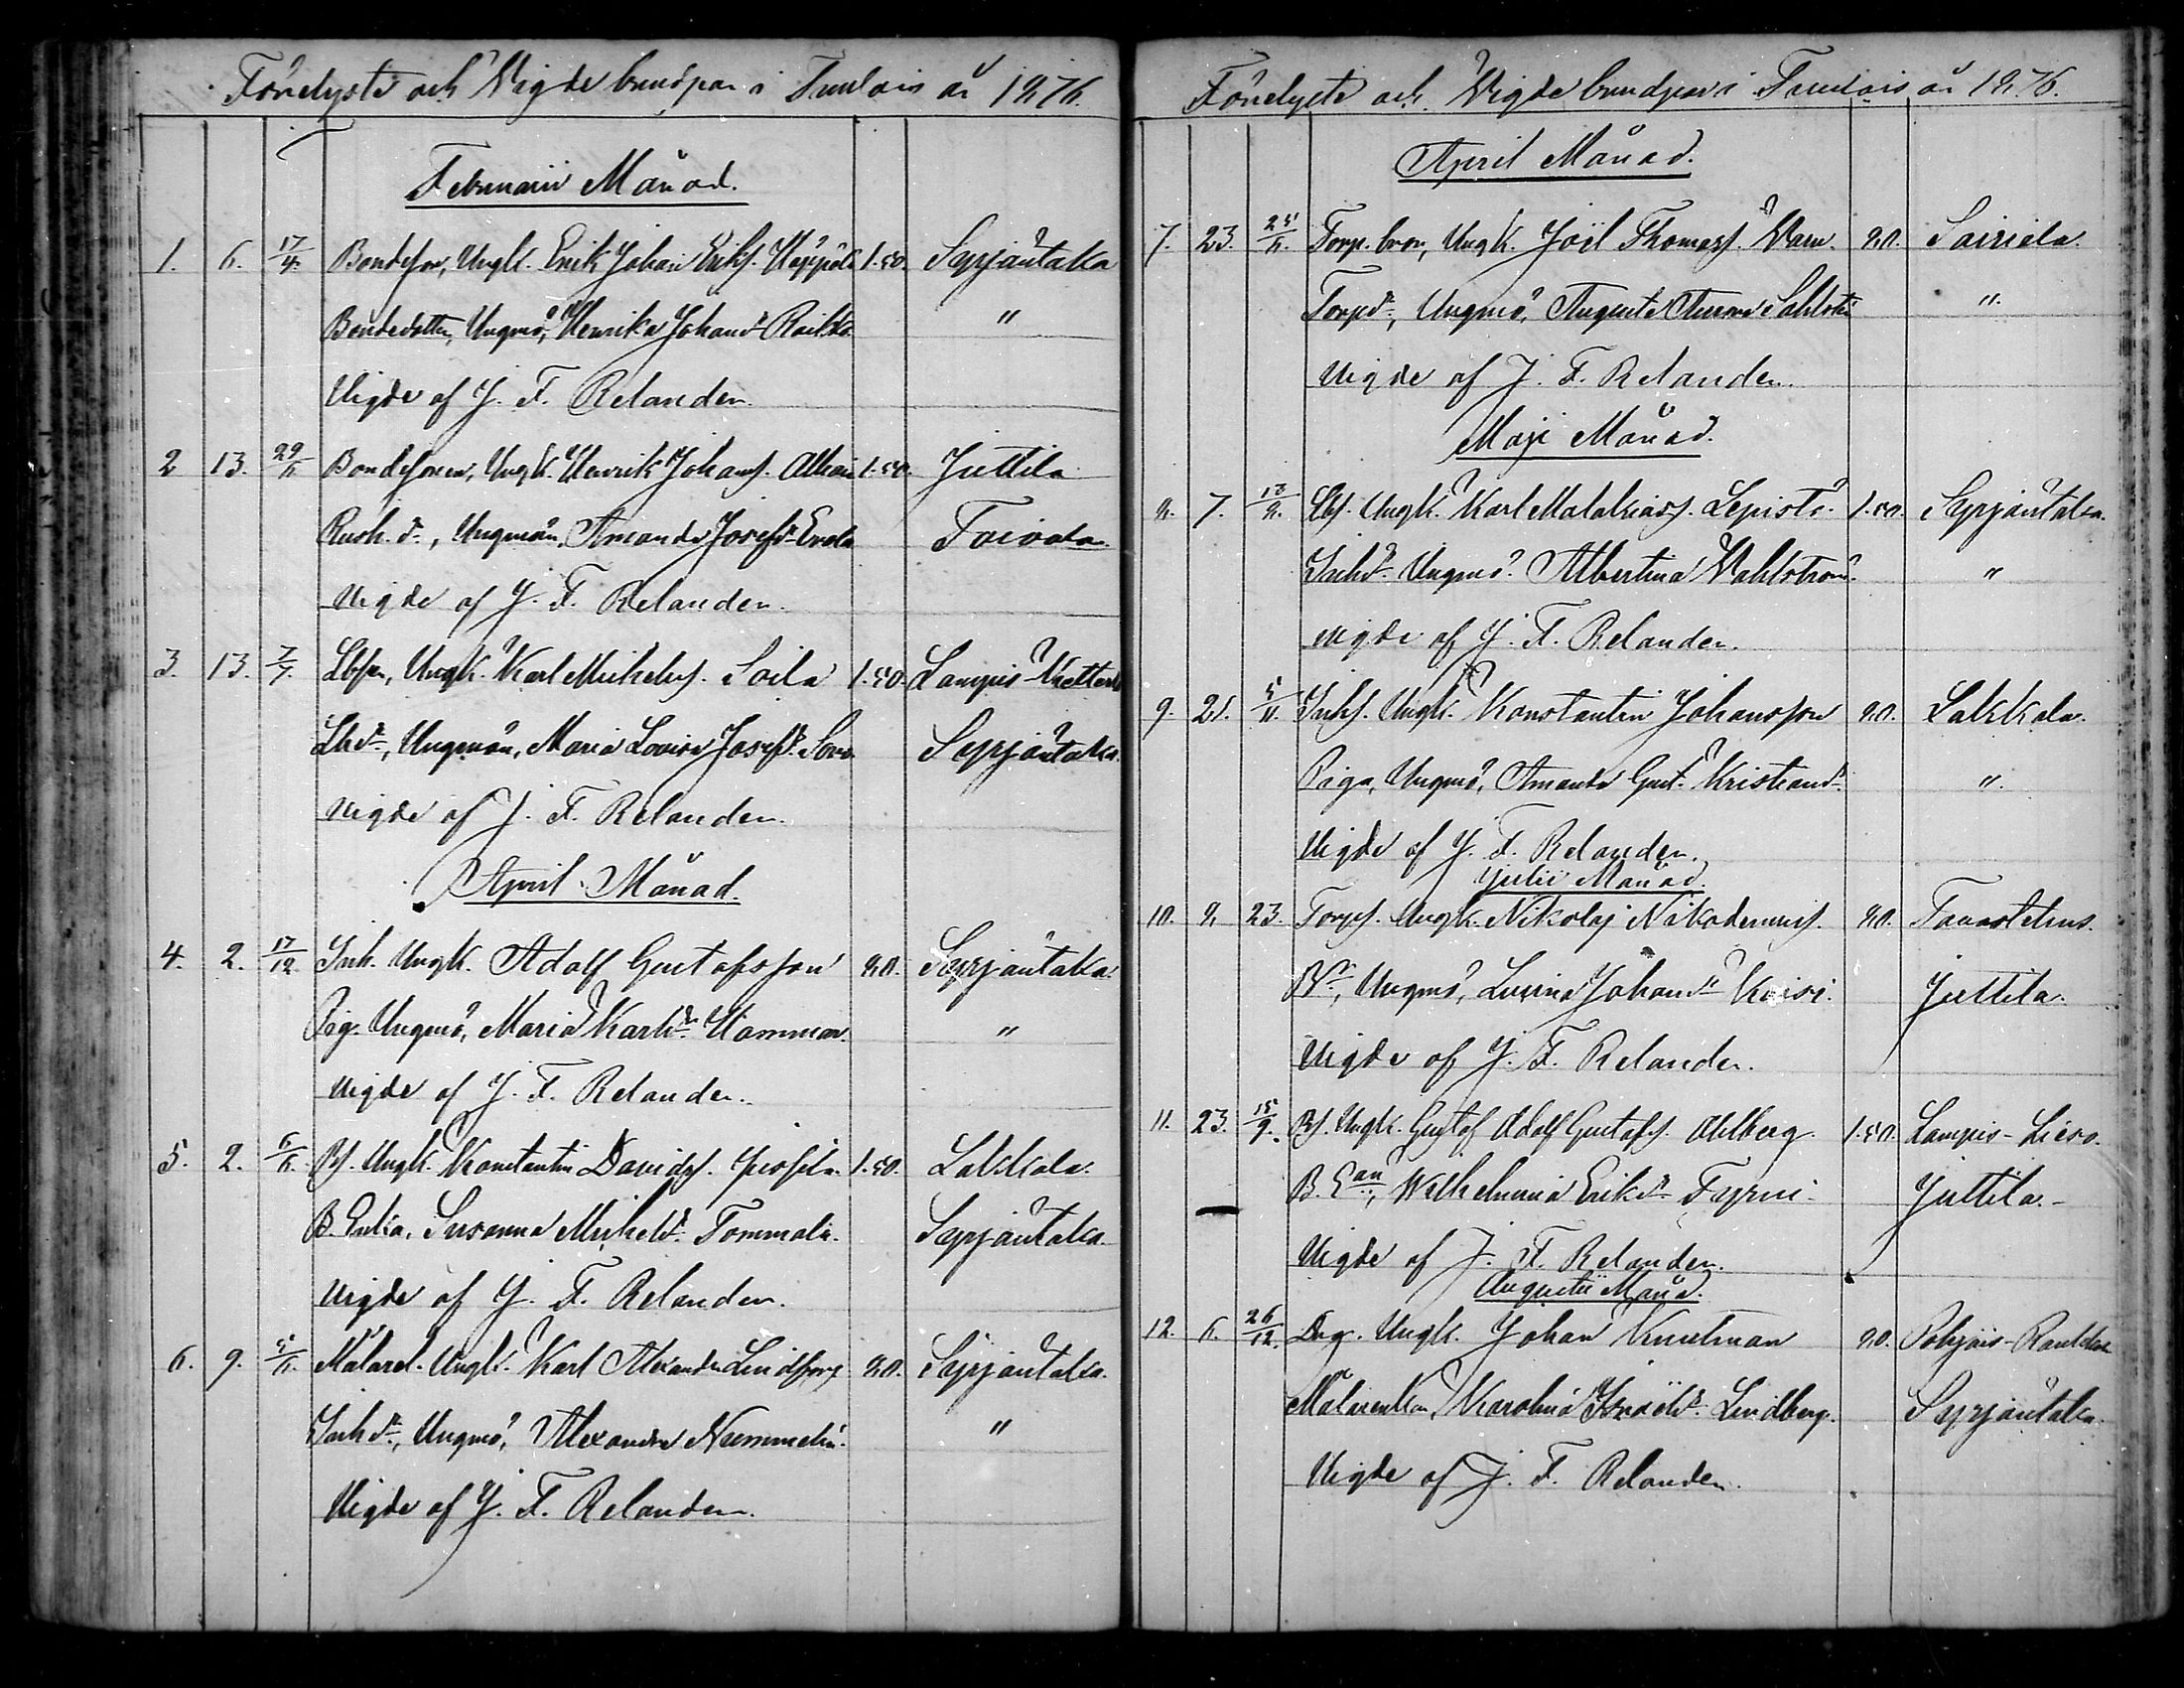 Förelyste och Vigde brudpar i Tuulois år 1876.
Februarii Månad.
1. 6. 17/4. Bondeson, Ungk. Erik Johan Eriks. Häppölä 1.50. Syrjäntaka
Bondedotter, Ungmö, Henrika Johansdr
"
Vigde af J. F. Relander.
2 13. 29/8 Bondesonen, Ungk. Henrik Johans. 1.50. Juttila
Rusth. dr, Ungmön, Amanda Josefsdr Erola Toivola
Vigde af J. F. Relander.
3. 13. 7/7. Lbson, Ungk. Karl Mickels. Soila 1.50. Lampis-
Lbdr, Ungmön, Maria Lovisa Josefsdr. Syrjäntaka.
Vigde af J. F. Relander.
April Månad.
4. 2. 17/12 Inh. Ungk. Adolf Gustafsson 80. Syrjäntaka.
Pig. Ungmö, Maria Karlsdr. Hammar. "
Vigde af J. F. Relander.
5. 2. 6/8. Bs. Ungk. Konstantin Davids. 1.50. Lakkala.
B. Enka, Susanna Mickelsdr. Tommola. Syrjäntaka
Vigde af J. F. Relander.
6. 9. 5/8. Målarel. Ungk. Karl Alexander 80. Syrjäntaka.
Inhdr, Ungmö, Alexandra Nummelin. "
Vigde af J. F. Relander.
Förelyste och Vigde brudpar i Tuulois år 1876.
April Månad.
7. 23. 25/8. Torp. bror, Ungk. Joël Thomass. 80. Sairiala.
Torpdr, Ungmö, Augusta Aurora "
Vigde af J. F. Relander.
Maji Månad.
8. 7. 13/8. Lbs. Ungk. Karl Malakiass. Lepistö. 1.50. Syrjäntaka.
Inhdr. Ungmö. Albertina Wahlström. "
Vigde af J. F. Relander.
9. 21. 5/11. Inhs. Ungk. Konstantin Johansson 80. Lakkala.
Piga, Ungmö, Amanda Gust. Kristiansdr. "
Vigde af J. F. Relander.
Julii Månad.
10. 8 23. Torps. Ungk. Nikolaj Nikodemus. 80. Tavastehus.
Bdr, Ungmö, Lusina Johansdr Juttila.
Vigde af J. F. Relander.
11. 23. 15/9. Bs. Ungk. Gustaf Adolf Gustafs. Ahlberg. 1.50. Lampis-Lieso.
B. Ean, Wilhelmina Eriksdr Juttila.
Vigde af J. F. Relander.
Augustii Månad.
12. 6. 26/12. Drg. Ungk. Johan Knutman 80. Pohjois-
Målarenkan, Karolina Israelsdr. Lindberg. Syrjäntaka.
Vigde af J. F. Relander.